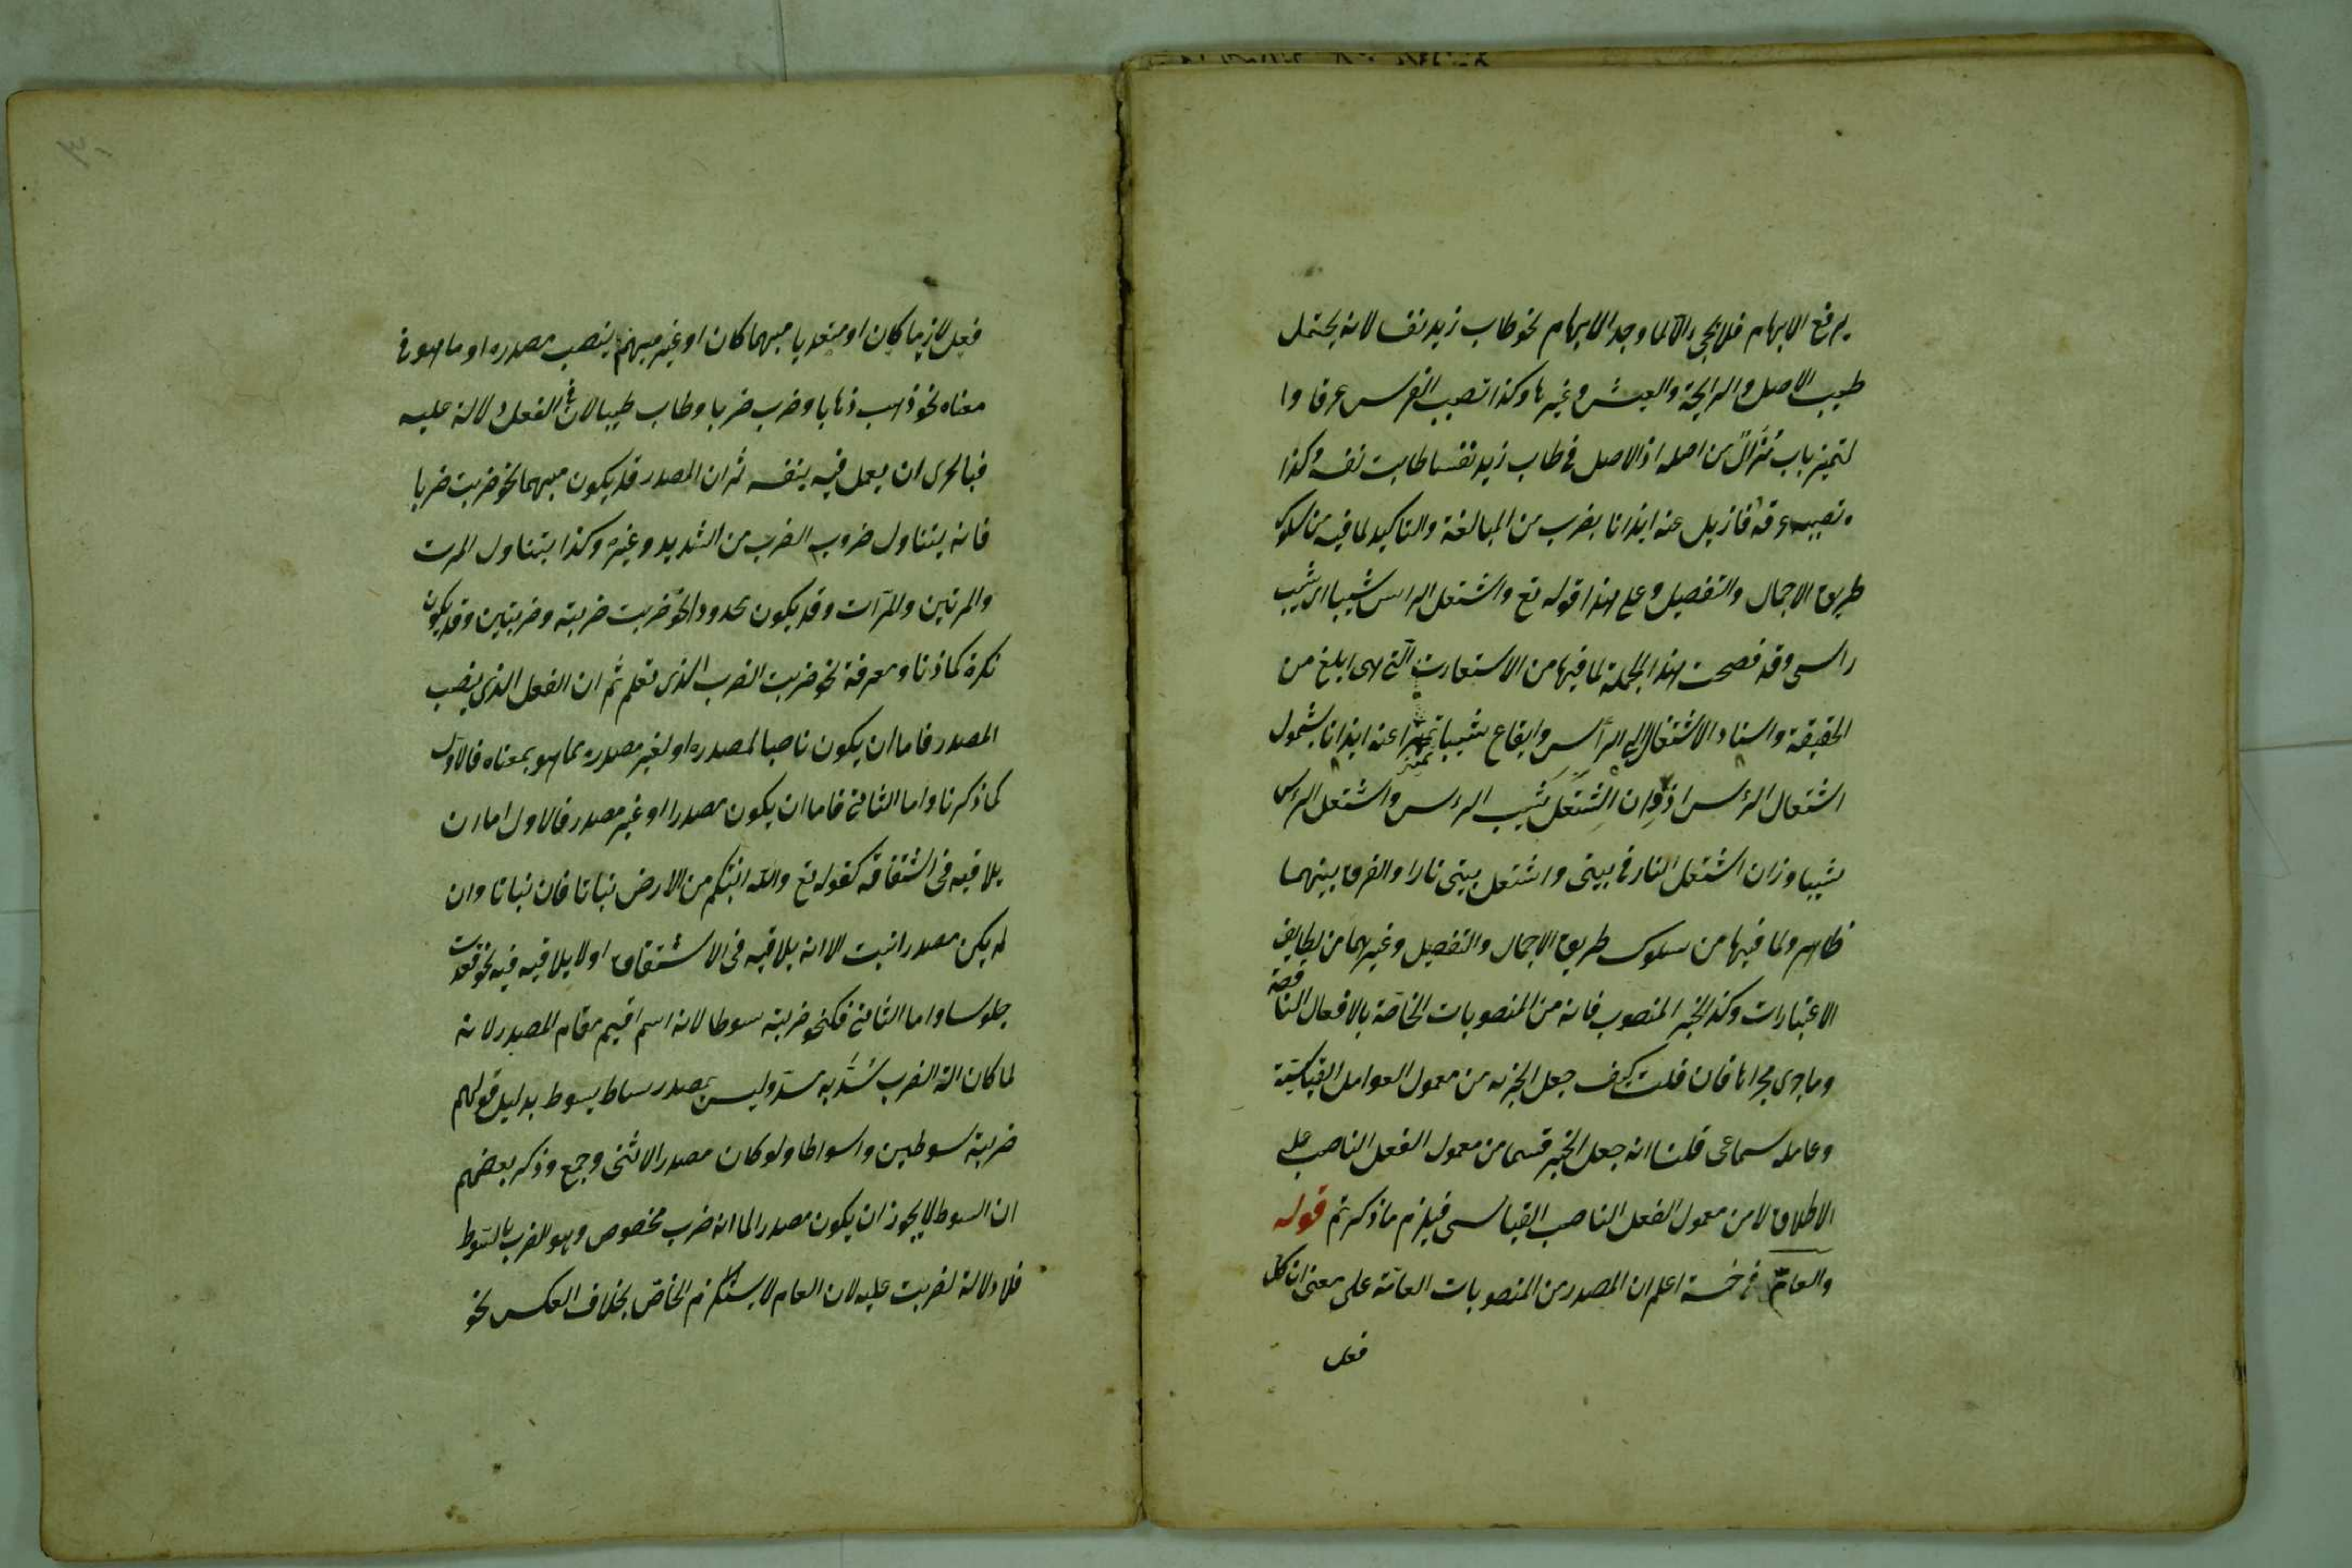 يرفع الابهام فلا يجئ الا لما وجد الابهام نحو طاب زيد نفسا لانه يحتمل
طيب الاصل والرايحة والعيش وغيرها وكذا تصبب الفرس عرقا وا
لتميز باب مُزالٌ من اصله اذ الاصل في طاب زيد نفسا طابت نفسه وكذا
تصبب عرقه فازيل عنه ايذانا بضرب من المبالغة والتاكيد لما فيه من سلوك
طريق الاجمال والتفصيل وعلى هذا قوله تع واشتعل الراس شيبا اى شيب
راسى وقد فصحت هذه الجملة لما فيها من الاستعارت التى هى ابلغ من
الحقيقة واسناد الاشتعال الى الرأس وايقاع شيبا تميزا عنه ايذانا بشمول
اشتعال الرٔس اذ وزان اشتعل شيب الرٔس واشتعل الرٔس
شيبا وزان اشتعل النار فى بيتى واشتعل بيتى نارا والفرق بينهما
ظاهر ولما فيها من سلوك طريق الاجمال والتفصيل وغيرهما من لطايف
الاعتبارات وكذا الخبر المنصوب فانه من المنصوبات الخاصّة بالافعال الناقصة
وما جرى مجراها فان قلت كيف جعل الخبر من معمول العوامل القياسيّة
وعامله سماعى قلنا انه جعل الخبر قسما من معمول الفعل الناصب على
الاطلاق لا من معمول الفعل الناصب القياسى فيلزم ما ذكرتم قوله
والعامّ فى خمسة اعلم ان المصدر من المنصوبات العامّة على معنى ان كل
فعل
فعل لازما كان او متعديا مبهما كان او غير مبهم ينصب مصدره او ما هو فى
معناه نحو ذهب ذهابا وضرب ضربا وطاب طيبا لان فى الفعل دلالة عليه
فبالحرى ان يعمل فيه بنفسه ثم ان المصدر قد يكون مبهما نحو ضربت ضربا
فانه يتناول ضروب الضرب من الشديد وغيره وكذا يتناول المرت
والمرتين والمرّات وقد يكون محدودا نحو ضربت ضربة وضربتين وقد يكون
نكرة كما ذنا ومعرفة نحو ضربت الضرب الذى تعلم ثم ان الفعل الذى ينصب
المصدر فاما ان يكون ناصبا لمصدره او لغير مصدره مما هو بمعناه فالاول
كما ذكرنا واما الثانى فاما ان يكون مصدرا او غير مصدر فالاول اما ان
يلاقيه فى اشتقاقه كقوله تع والله انبتكم من الارض نباتا فان نباتا وان
لم يكن مصدر انبت الا انه يلاقيه فى الاشتقاق او لا يلاقيه فيه نحو قعدت
جلوسا واما الثانى فكنحو ضربته سوطا لانه اسم اقيم مقام المصدر لانه
لما كان الة الضرب سُمّى به وليس بمصدر ساط يسوط بدليل قولهم
ضربته سوطين واسواطا ولو كان مصدرا لا ثنى وجمع وذكر بعضهم
ان السوط لا يجوز ان يكون مصدرا لما انه ضرب مخصوص وهو الضرب بالسّوط
فلا دلالة لضربت عليه لان العام لا يستلزم الخاصّ بخلاف العكس نحو